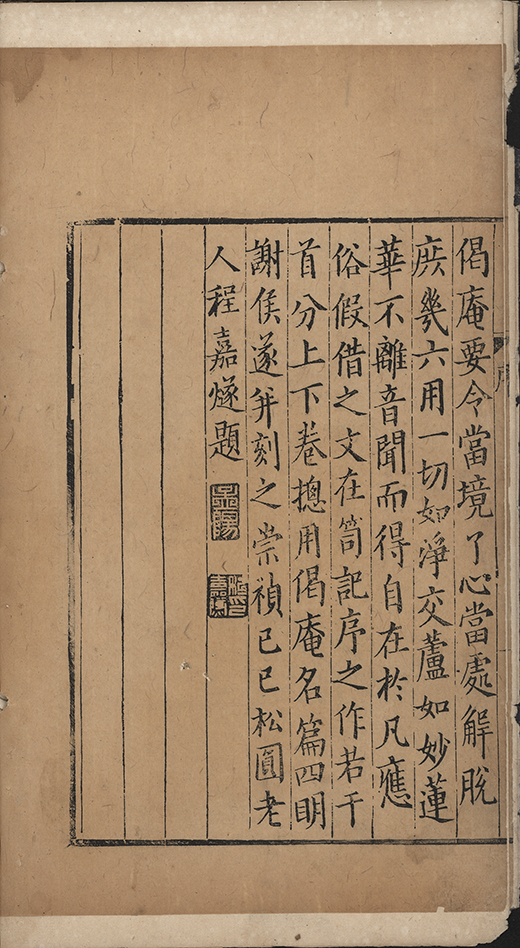 偈庵要令當境了心當處解脫
庻幾六用一切如淨交蘆如妙蓮
華不離音聞而得自在於凡應
俗假借之文在笥記序之作若干
首分上下卷摠用偈庵名篇四明
謝侯遂并刻之崇禎己巳松圓老
人程嘉燧題
序